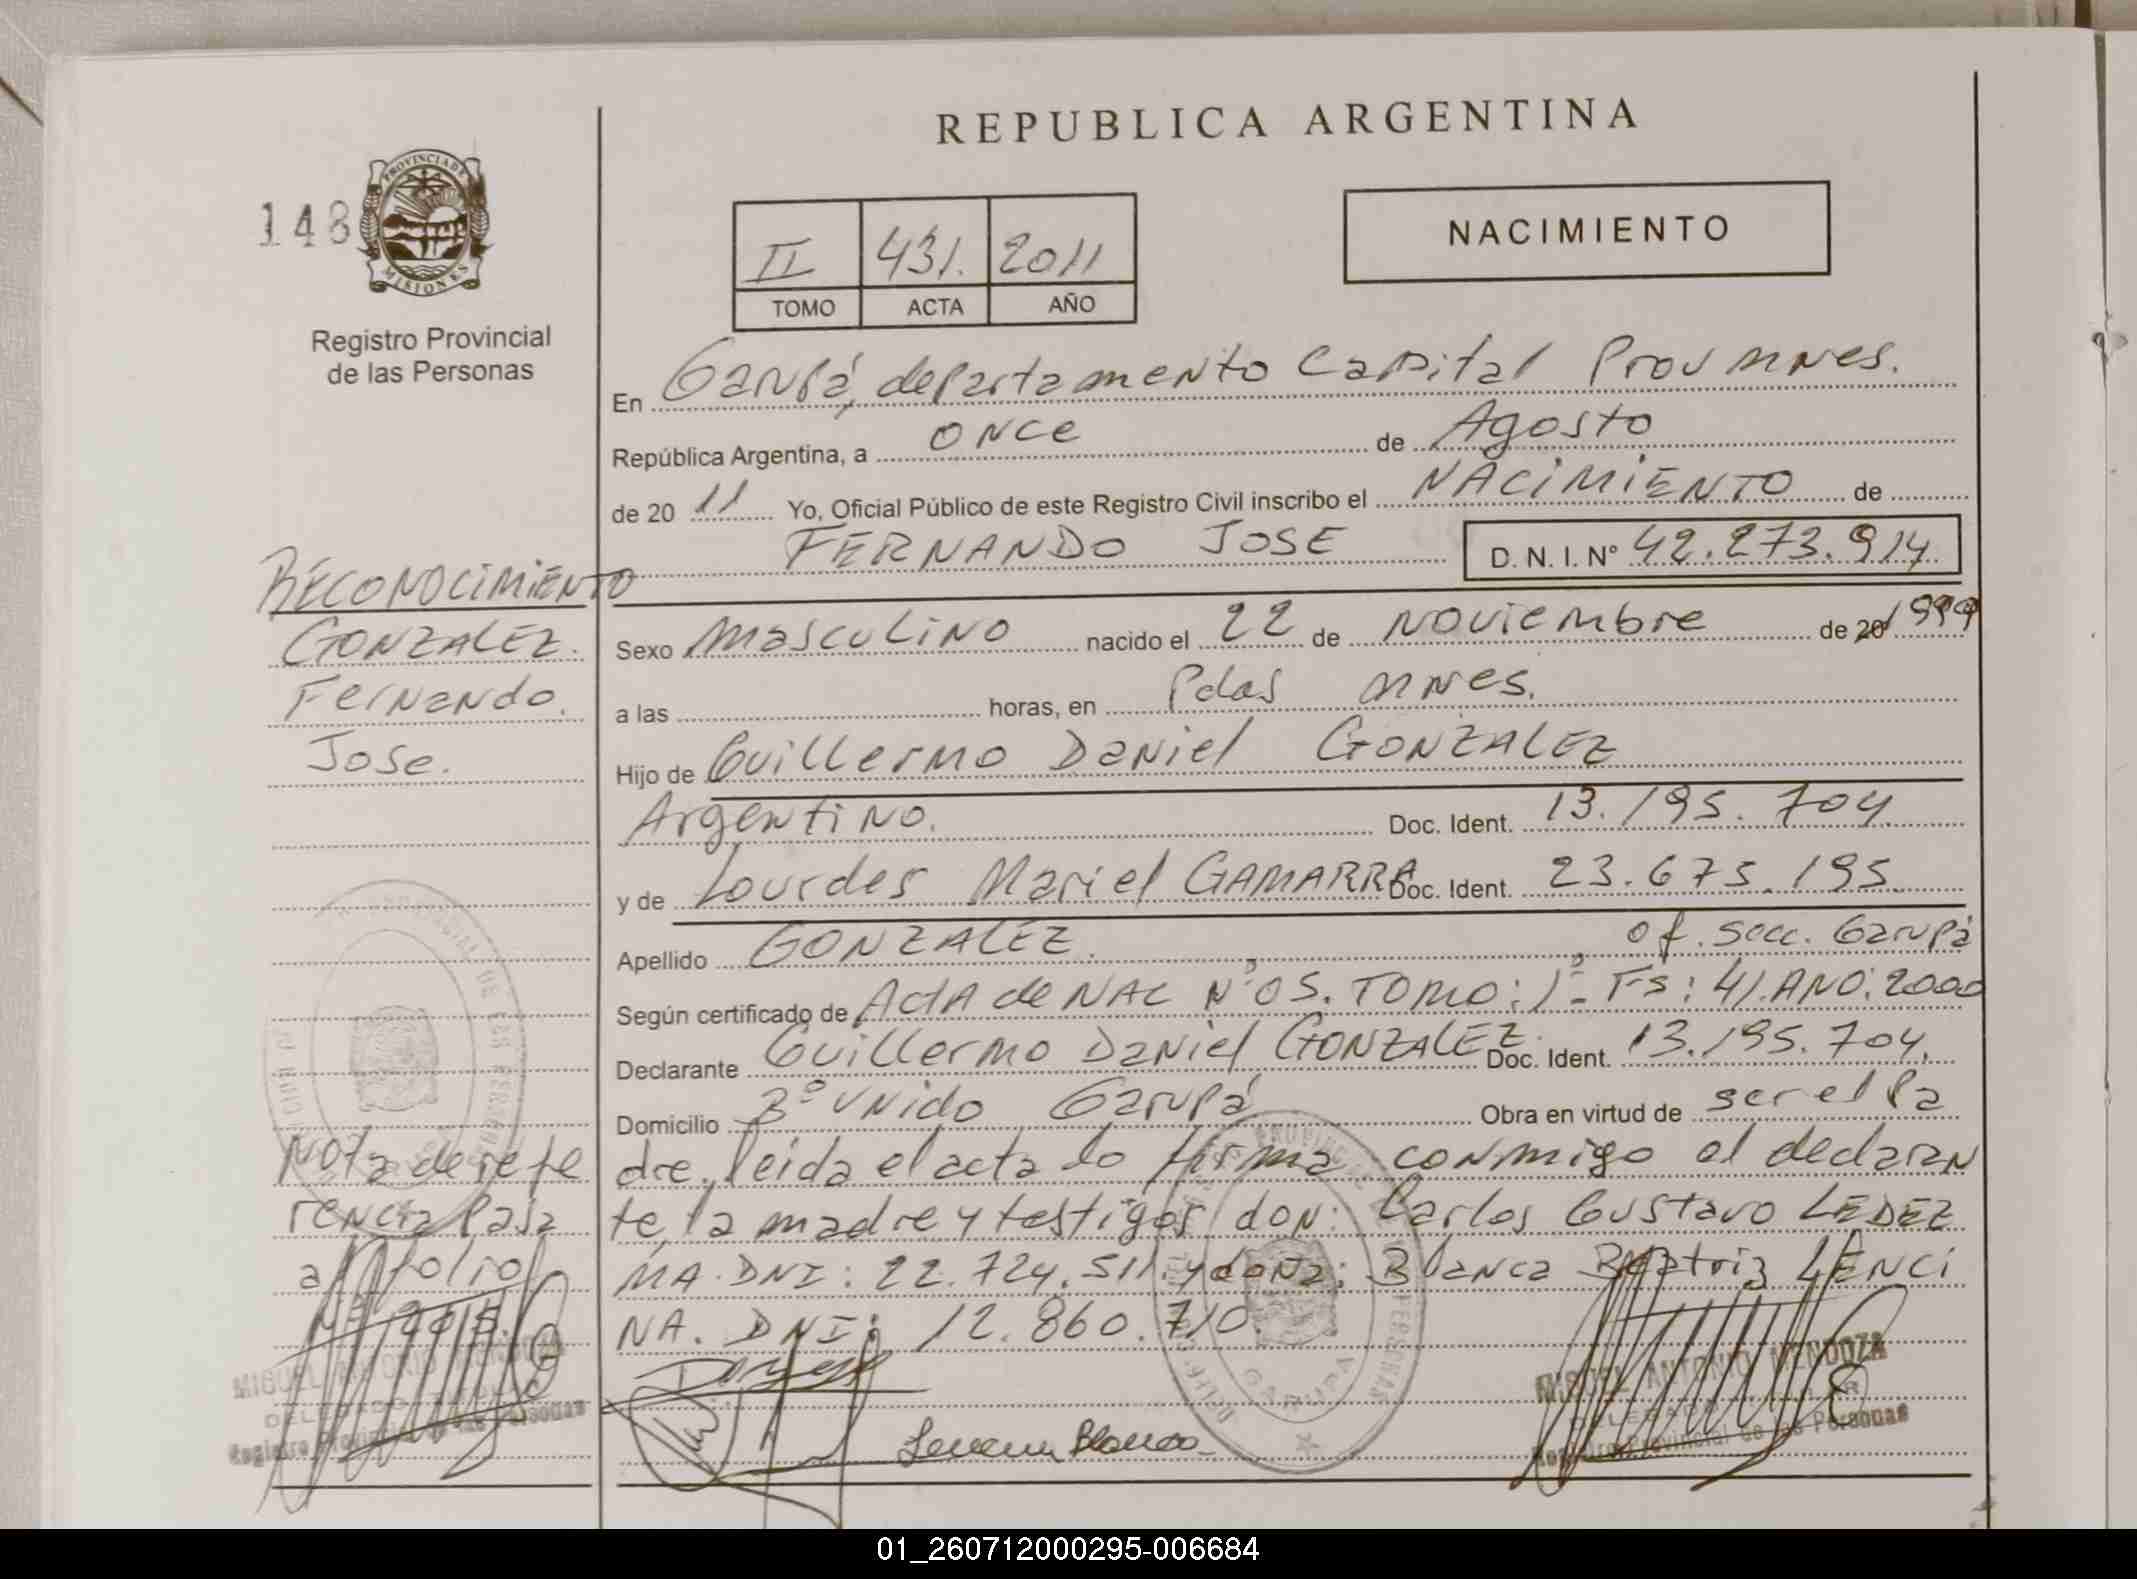 REPUBLICA ARGENTINA
148
PROVINCIA DE
MISIONES
Registro Provincial
de las Personas
II 431. 2011
TOMO ACTA AÑO
NACIMIENTO
En Garupá, departamento Capital Prov mnes.
República Argentina, a once de Agosto
de 20 11 Yo, Oficial Público de este Registro Civil inscribo el NACIMIENTO de
FERNANDO JOSE D. N. I. N° 42.273.914.
RECONOCIMIENTO
GONZALEZ.
Fernando.
Jose.
Sexo masculino nacido el 22 de noviembre de 20 1999
a las horas, en Pdas mnes.
Hijo de Guillermo Daniel GONZALEZ
Argentino. Doc. Ident. 13.195.704
y de Lourdes Mariel GAMARRA Doc. Ident. 23.675.195
Apellido GONZALEZ. of. secc. Garupá
Según certificado de Acta de NAC N°05. TOMO: 1º- Fs: 41. AÑO: 2000
Declarante Guillermo Daniel GONZALEZ. Doc. Ident. 13.195.704.
Domicilio Bº Unido Garupá Obra en virtud de ser el pa
dre. leida el acta lo firma conmigo el declaran
te, la madre y testigos don: Carlos Gustavo LEDEZ
MA. DNI: 22.724.511 y doña: Blanca Beatriz LENCI
NA. DNI: 12.860.710.
Nota de refe
rencia pasa
al folio
Nº
MIGUEL ANTONIO MENDOZA
DELEGADO
Registro Provincial de las Personas
Blanca
GARUPA
MIGUEL ANTONIO MENDOZA
DELEGADO
Registro Provincial de las Personas
01_260712000295-006684